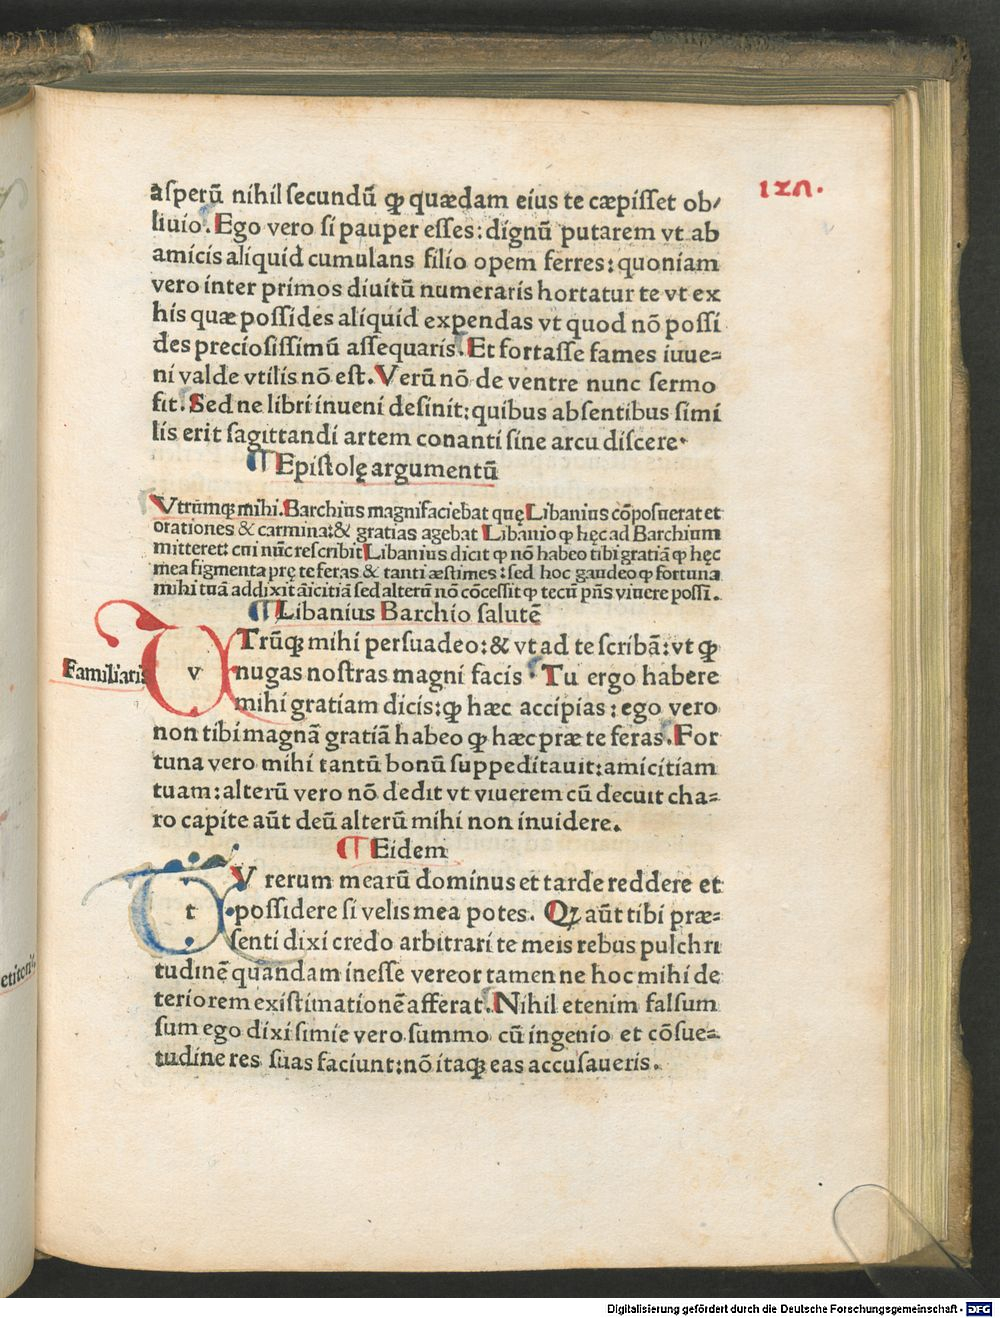 127.
asperū nihil secundū ꝙ quædam eius te cæpisset ob/
liuio. Ego vero si pauper esses: dignū putarem vt ab
amicis aliquid cumulans filio opem ferres: quoniam
vero inter primos diuitū numeraris hortatur te vt ex
his quæ possides aliquid expendas vt quod nō possi
des preciosissimū assequaris. Et fortasse fames iuue=
ni valde vtilis nō est. Verū nō de ventre nunc sermo
fit. Sed ne libri inueni desinit: quibus absentibus simi
lis erit sagittandi artem conanti sine arcu discere.
¶ Epistolę argumentū
Vtrūmqꝫ mihi. Barchius magnifaciebat quę Libanius cōposuerat et
orationes & carmina: & gratias agebat Libanio ꝙ hęc ad Barchium
mitteret: cui nūc rescribit Libanius dicit ꝙ nō habeo tibi gratiā ꝙ hęc
mea figmenta prę te feras & tanti æstimes: sed hoc gaudeo ꝙ fortuna
mihi tuā addixit āicitiā sed alterū nō cōcessit ꝙ tecū pn̄s viuere possī.
¶ Libanius Barchio salutē
Familiaris
v
VTrūqꝫ mihi persuadeo: & vt ad te scribā: vt ꝙ
nugas nostras magni facis. Tu ergo habere
mihi gratiam dicis: ꝙ hæc accipias: ego vero
non tibi magnā gratiā habeo ꝙ hæc præ te feras. For
tuna vero mihi tantū bonū suppeditauit: amicitiam
tuam: alterū vero nō dedit vt viuerem cū decuit cha=
ro capite aūt deū alterū mihi non inuidere.
¶ Eidem
t
TV rerum mearū dominus et tarde reddere et
possidere si velis mea potes. Qꝫ aūt tibi præ=
senti dixi credo arbitrari te meis rebus pulchri
tudinē quandam inesse vereor tamen ne hoc mihi de
teriorem existimationē afferat. Nihil etenim falsum
sum ego dixi simie vero summo cū ingenio et cōsue=
tudine res suas faciunt: nō itaqꝫ eas accusaueris.
Digitalisierung gefördert durch die Deutsche Forschungsgemeinschaft - DFG